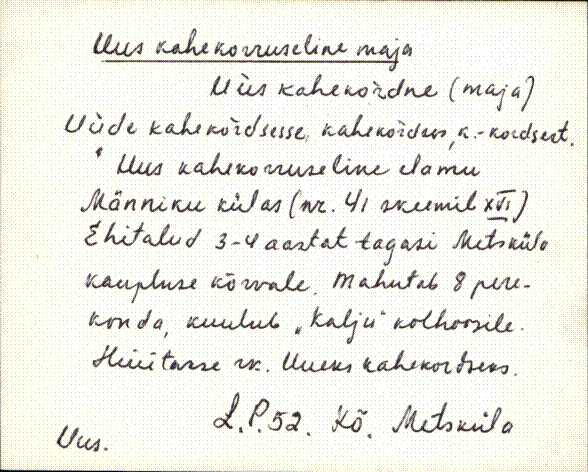 Uus kahekorruseline maja
Uus kahekordne (maja)
Uude kahekordsesse, kahekordses, k.-kordsest.
Uus kahekorruseline elamu
Männiku külas (nr. 41 skeemil XVI)
Ehitatud 3-4 aastat tagasi Metsküla
kaupluse kõrvale. Mahutab 8 pere-
konda, kuulub „Kalju" kolhoosile.
Hüütasse rk. Uueks kahekordseks.
L.P.52. Kõ. Metsküla
Uus.